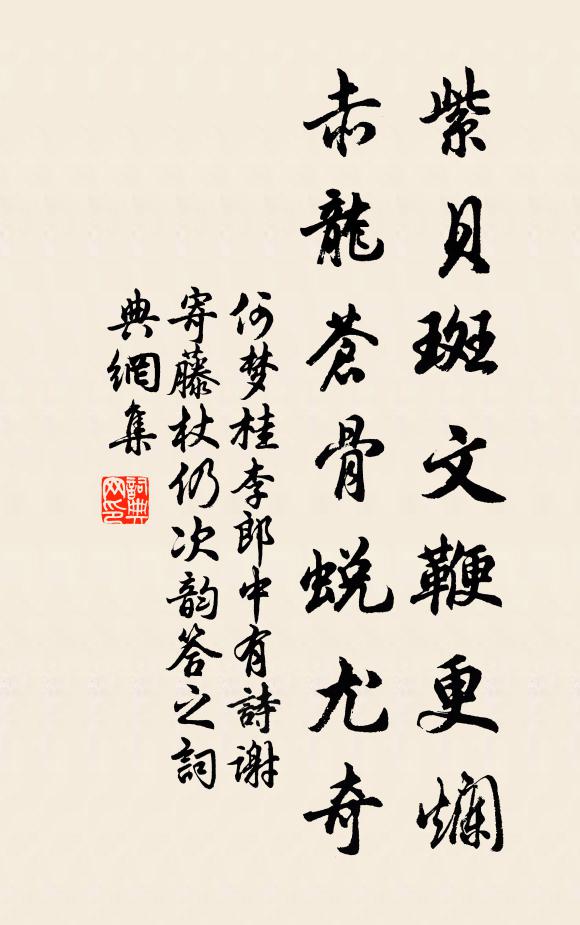 紫貝斑文鞭更爛
赤龍蒼骨蛻尤奇
何梦桂李郎中有詩谢
寄藤杖仍次韵答之詞
典網集
詞典网印